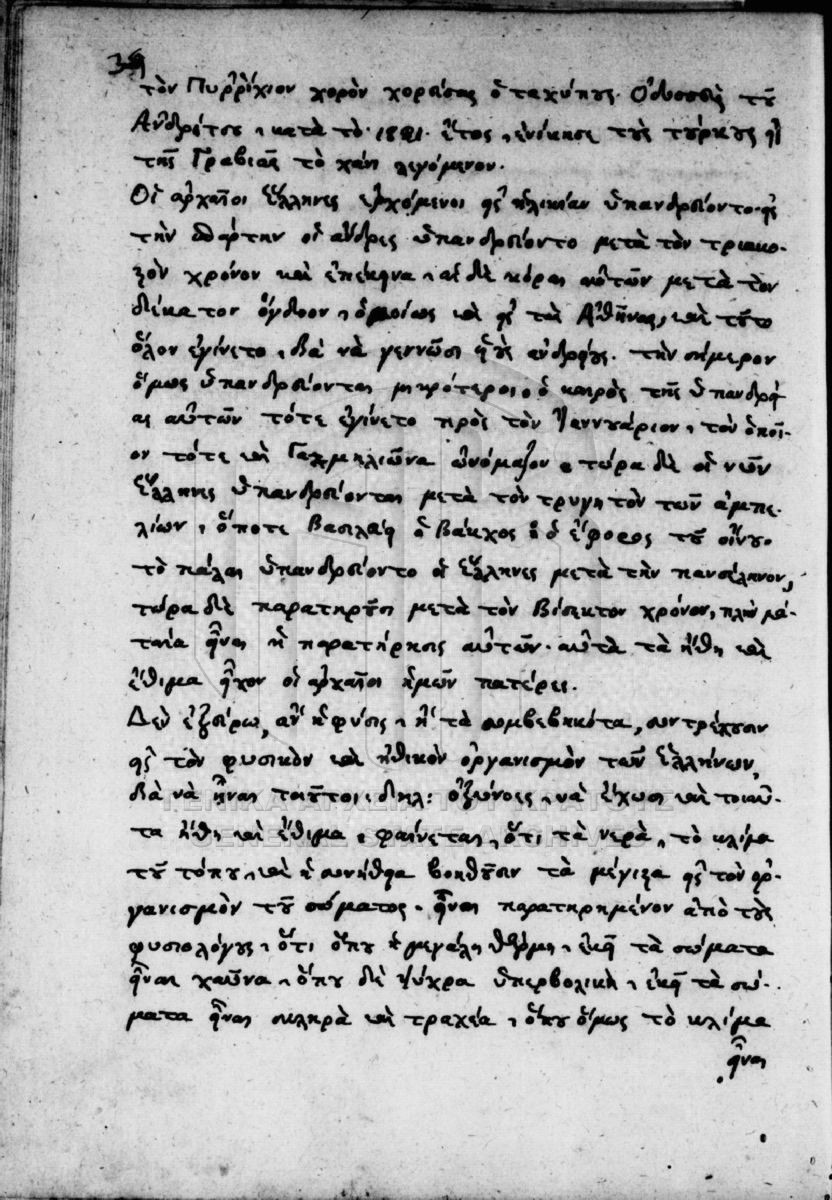 39
τὸν Πυῤῥίχιον χορὸν χορεύσας ὁ ταχύπους Ὀδυσσεὺς τοῦ
Ἀνδρίτσου, κατὰ τὸ 1821 ἔτος, ἐνίκησε τοὺς τούρκους εἰς
τῆς Γραβιᾶς τὸ χάνι λεγόμενον.
Οἱ ἀρχαῖοι Ἕλληνες ἐρχόμενοι εἰς ἡλικίαν ὑπανδρεύοντο· εἰς
τὴν Σπάρτην οἱ ἄνδρες ὑπανδρεύοντο μετὰ τὸν τριακο-
στὸν χρόνον καὶ ἐπέκεινα, αἱ δὲ κόραι αὐτῶν μετὰ τὸν
δέκατον ὄγδοον, ὁμοίως καὶ εἰς τὰς Ἀθήνας, καὶ τοῦτο
ὅλον ἐγίνετο, διὰ νὰ γεννῶσι υἱοὺς ἀνδρείους. τὴν σήμερον
ὅμως ὑπανδρεύονται μικρότεροι, ὁ καιρὸς τῆς ὑπανδρεί-
ας αὐτῶν τότε ἐγίνετο πρὸς τὸν Ἰαννουάριον, τὸν ὁποῖ-
ον τότε καὶ Γαμηλιῶνα ὠνόμαζον. τώρα δὲ οἱ νῦν
Ἕλληνες ὑπανδρεύονται μετὰ τὸν τρυγητὸν τῶν ἀμπε-
λίων, ὅποτε βασιλεύει ὁ Βάκχος ὁ ἔφορος τοῦ οἴνου.
τὸ πάλαι ὑπανδρεύοντο οἱ Ἕλληνες μετὰ τὴν πανσέληνον,
τώρα δὲ παρατηροῦσι μετὰ τὸν Βίσεκτον χρόνον, πλὴν μα-
ταία εἶναι ἡ παρατήρησις αὐτῶν. αὐτὰ τὰ ἤθη καὶ
ἔθιμα εἶχον οἱ ἀρχαῖοι ἡμῶν πατέρες.
Δὲν ἐξεύρω, ἂν ἡ φύσις, ἢ τὰ συμβεβηκότα, συντρέχουσιν
εἰς τὸν φυσικὸν καὶ ἠθικὸν ὀργανισμὸν τῶν Ἑλλήνων,
διὰ νὰ ἦναι τοιοῦτοι, δηλ: ὀξύνοες, νὰ ἔχωσι καὶ τοιαῦ-
τα ἤθη καὶ ἔθιμα. φαίνεται, ὅτι τὰ νερὰ, τὸ κλίμα
τοῦ τόπου, καὶ ἡ συνήθεια βοηθοῦσιν τὰ μέγιστα εἰς τὸν ὀρ-
γανισμὸν τοῦ σώματος. εἶναι παρατηρημένον ἀπὸ τοὺς
φυσιολόγους, ὅτι ὅπου ἡ μεγάλη θέρμη, ἐκεῖ τὰ σώματα
εἶναι χαῦνα, ὅπου δὲ ψύχρα ὑπερβολικὴ, ἐκεῖ τὰ σώ-
ματα εἶναι σκληρὰ καὶ τραχέα, ὅπου ὅμως τὸ κλίμα
εἶναι